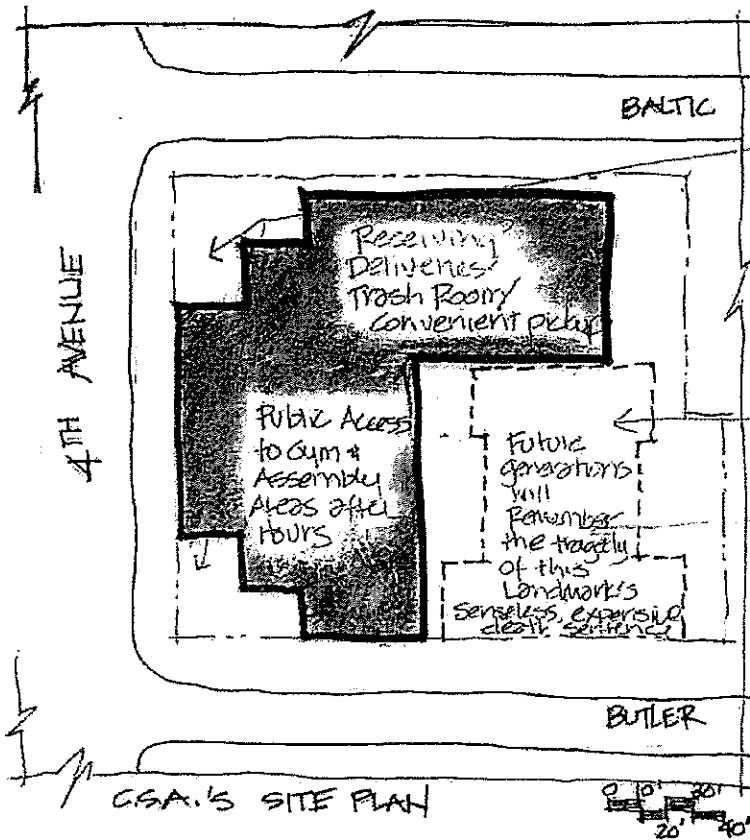 BALTIC
4TH AVENUE
Receiving
Deliveries
Trash Room/
convenient pickup
Public Access
to Gym &
Assembly
Areas after
hours
Future
generations
will
Remember
the tragedy
of this
Landmark's
senseless, expensive
death sentence
BUTLER
C.S.A.'S SITE PLAN
0 10' 30'
20' 40'